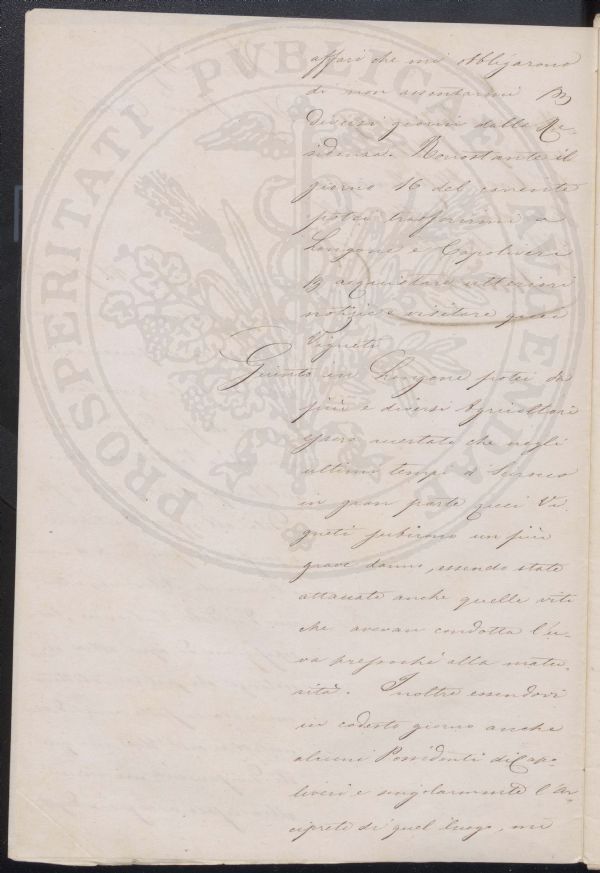 affari che mi obbligarono
di non assentarmi p
diversi giorni dalla Re-
sidenza. Nonostante il
giorno 16 del corrente
potei trasferirmi a
Longone e Capoliveri
p acquistare ulteriori
notizie e visitare quei
Vigneti
Giunto in Longone potei da
più e diversi Agricoltori
essere accertato che negli
ultimi tempi di
in gran parte quei Vi-
gneti subirono un più
grave danno, essendo state
attaccate anche quelle viti
che avevan condotta l'u-
va pressoché alla matu-
rità. Inoltre essendovi
in codesto giorno anche
alcuni Possidenti di Capo-
liveri e singolarmente l'Ar-
ciprete di quel luogo, mi
PROSPERITATI PUBLICAE AUGENDAE